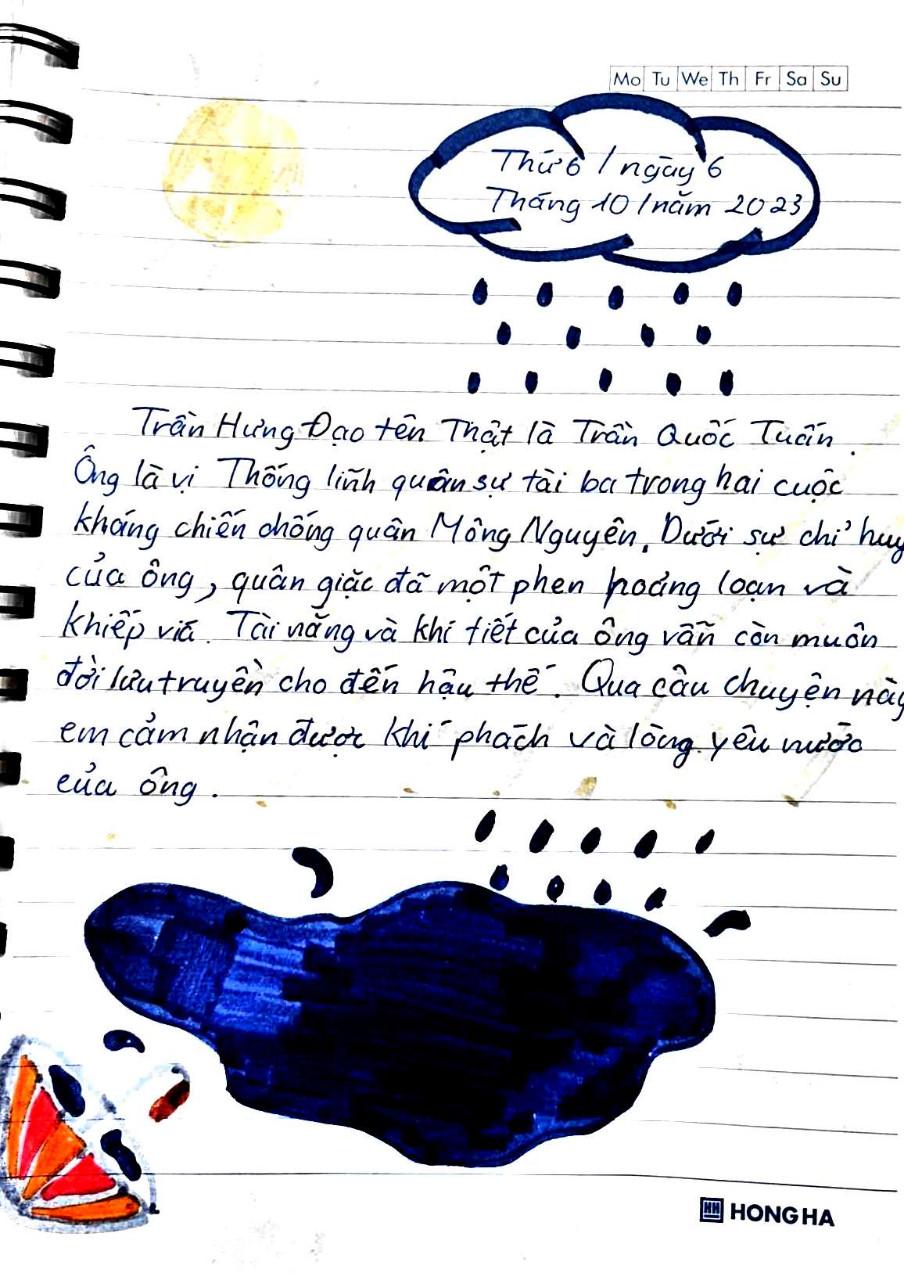 Mo Tu We Th Fr Sa Su
Thứ 6 / ngày 6
Tháng 10 / năm 2023
Trần Hưng Đạo tên Thật là Trần Quốc Tuấn.
Ông là vị Thống lĩnh quân sự tài ba trong hai cuộc
kháng chiến chống quân Mông Nguyên. Dưới sự chỉ huy
của ông, quân giặc đã một phen hoảng loạn và
khiếp vía. Tài năng và khí tiết của ông vẫn còn muôn
đời lưu truyền cho đến hậu thế. Qua câu chuyện này
em cảm nhận được khí phách và lòng yêu nước
của ông.
HH HONG HA